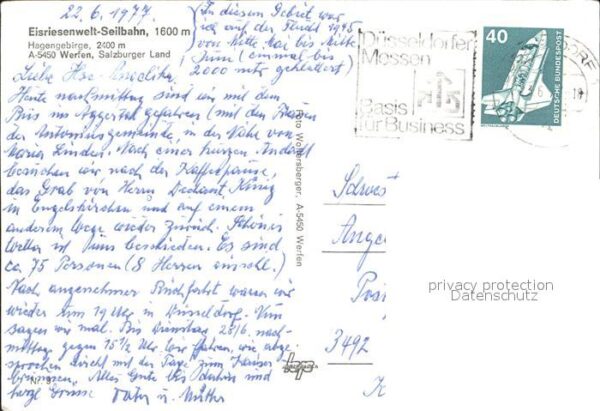 22.6.1977.
Eisriesenwelt-Seilbahn, 1600 m
Hagengebirge, 2400 m
A-5450 Werfen, Salzburger Land
In diesem Gebiet war
ich auf der Flucht 1945
von Mitte Mai bis Mitte
Juni (einmal bis
2000 mtr geklettert)
Liebe
Heute nachmittag sind wir mit dem
Bus ins Aggertal gefahren (mit den Frauen
der Antoniusgemeinde, in der Nähe von
Maria Linden. Nach einer kurzen Andacht
besuchten wir nach der Kaffeepause,
das Grab von Herrn Dechant König
in Engelskirchen und auf einem
anderem Wege wieder zurück. Schönes
Wetter ist uns beschieden. Es sind
ca. 75 Personen (8 Herren einschl.)
Nach angenehmer Rückfahrt waren wir
wieder um 19 Uhr in Düsseldorf. Nun
sagen wir mal. Bis Dienstag 28/6. nach-
mittags gegen 15½ Uhr wir fahren, wie abge-
sprochen direkt mit der Taxe zum
Alles Gute bis dahin und
herzl. Grüsse Vater u. Mutter
Nr. 87
Foto Woltersberger, A-5450 Werfen
Düsseldorfer
Messen
Basis
für Business
40
DEUTSCHE BUNDESPOST
DORF
Schwest
Ange
Post
3492
K
privacy protection
Datenschutz